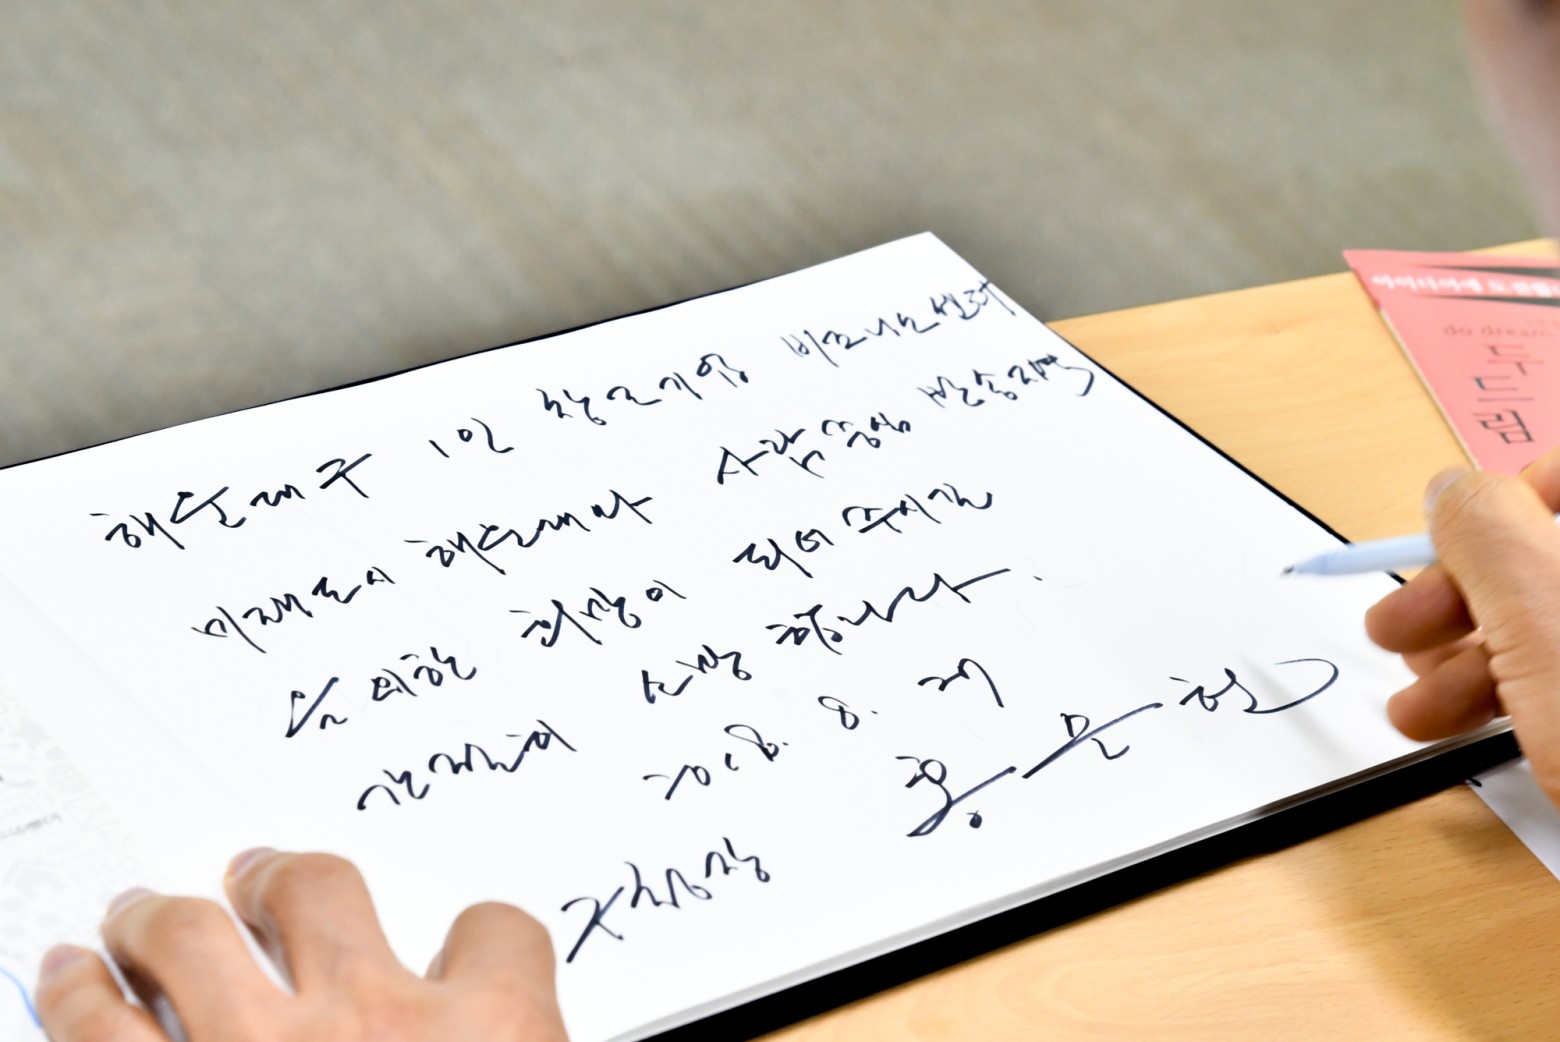 해운대구 1인 창조기업 비즈니스센터
미래도시 해운대가 사람중심 발송지역
을 위한 희망이 되어 주시길
간절히 소망 합니다.
2018. 8. 27
구청장 홍순헌
do dream
두
드
림